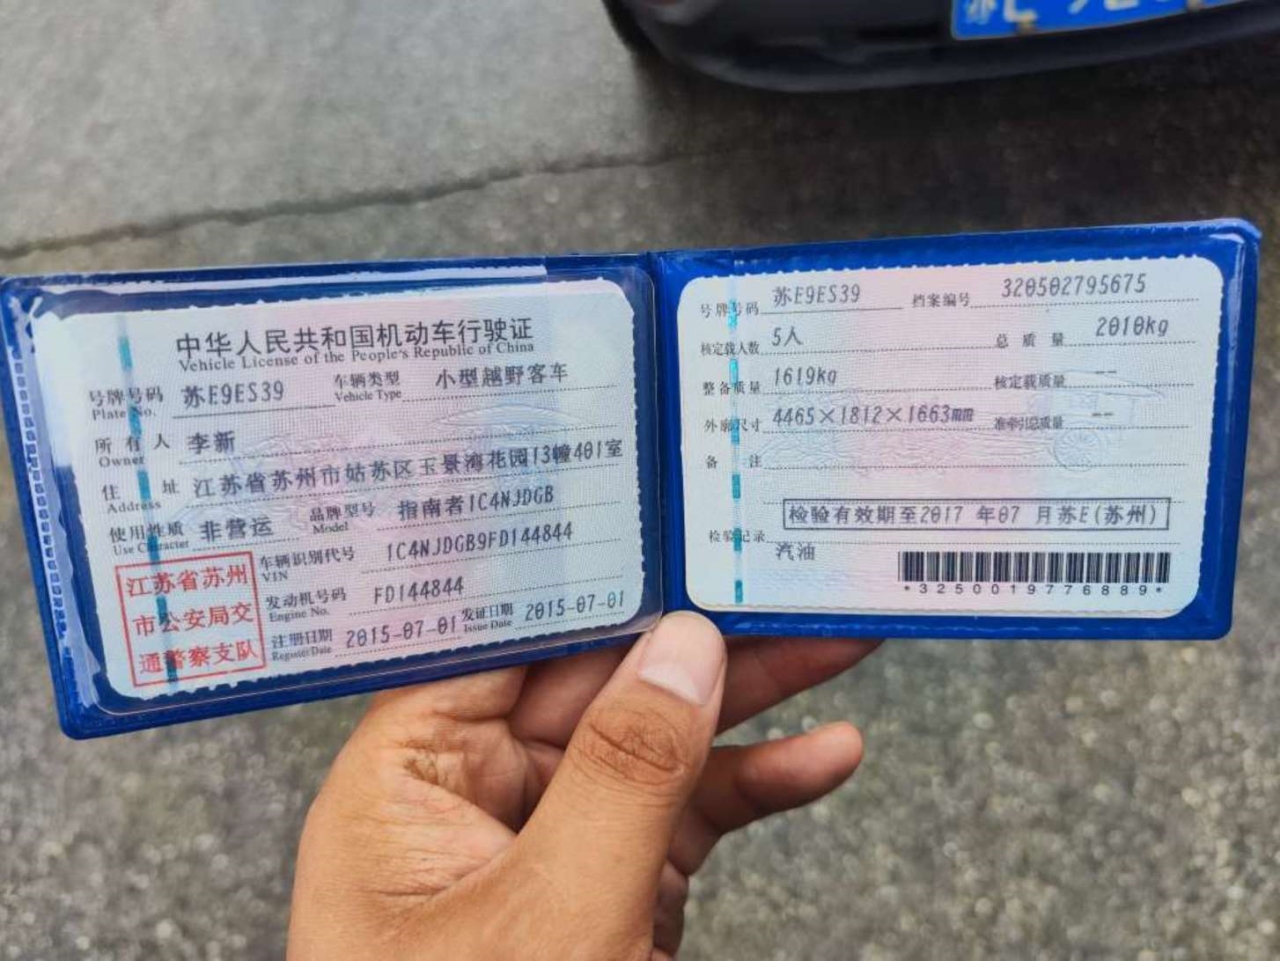 中华人民共和国机动车行驶证
Vehicle License of the People's Republic of China
号牌号码 苏E9ES39 车辆类型 小型越野客车
Plate No. Vehicle Type
所有人 李新
Owner
住址 江苏省苏州市姑苏区玉景湾花园13幢401室
Address
使用性质 非营运 品牌型号 指南者1C4NJDGB
Use Character Model
江苏省苏州
市公安局交
通警察支队
车辆识别代号 1C4NJDGB9FD144844
VIN
发动机号码 FD144844
Engine No.
注册日期 2015-07-01 发证日期 2015-07-01
Register Date Issue Date
号牌号码 苏E9ES39 档案编号 320502795675
核定载人数 5人 总质量 2010kg
整备质量 1619kg 核定载质量 --
外廓尺寸 4465×1812×1663mm 准牵引总质量 --
备注
检验有效期至2017 年07 月苏E(苏州)
检验记录
汽油
*3250019776889*